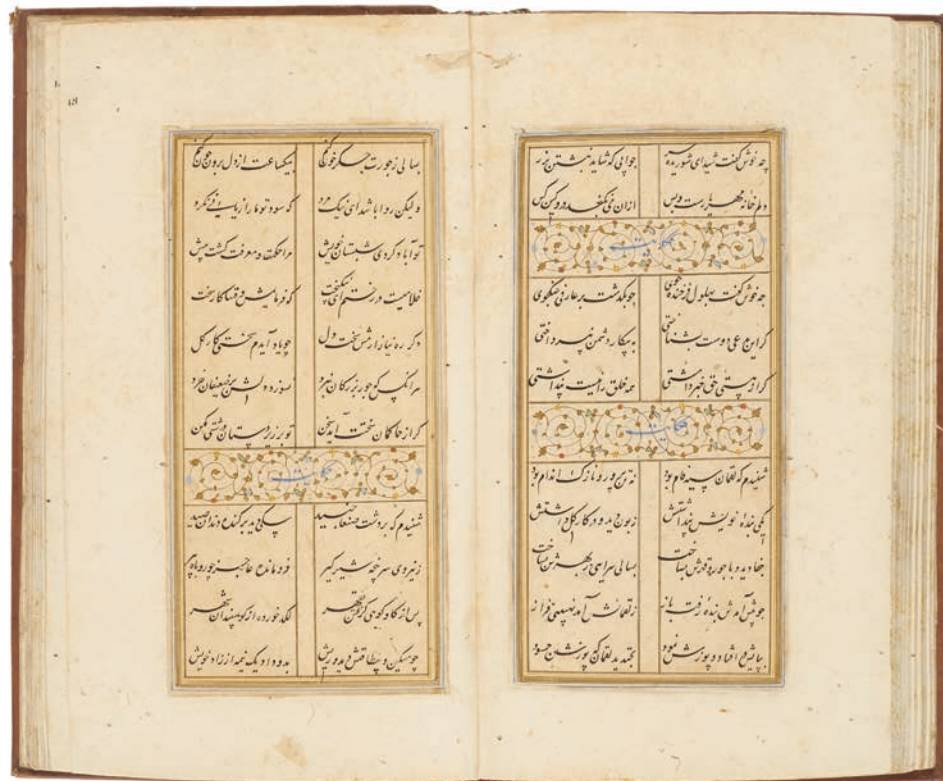 چه خوش گفت شیدای شوریده سر جوابی که شاید نبشتن بزر
دلم خانه مهر یارست و بس ازان می نگنجد درو کین کس
حکایت
چه خوش گفت بهلول فرخنده خوی چو بگذشت بر عارفی جنگجوی
گر این مدعی دوست بشناختی به پیکار دشمن نپرداختی
گر از هستی حق خبر داشتی همه خلق را نیست پنداشتی
حکایت
شنیدم که لقمان سیه فام بود نه تن پرور و نازک اندام بود
یکی بنده خویش پنداشتش زبون دید و در کار گل داشتش
جفا دید و با جور و قهرش بساخت بسالی سرایی ز بهرش بساخت
چو پیش آمدش بنده رفته باز ز لقمانش آمد نهیبی فراز
بپایش در افتاد و پوزش نمود بخندید لقمان که پوزش چه سود
بسالی ز جورت جگر خون کنم بیکساعت از دل برون چون کنم
ولیکن روا باشد ای نیک مرد که سود تو ما را زیانی نکرد
تو آباد کردی شبستان خویش مرا حکمت و معرفت گشت بیش
غلامیست در رختم ای نیکبخت که فرمایمش وقتها کار سخت
دگر ره نیازارمش سخت دل چو یاد آیدم سختی کار گل
هر آنکس که جور بزرگان نبرد نسوزد دلش بر ضعیفان خرد
گر از حاکمان سختت آید سخن تو بر زیردستان درشتی مکن
حکایت
شنیدم که در دشت صنعا جنید سگی دید بر کنده دندان صید
ز نیروی سرپنجه شیر گیر فرومانده عاجز چو روباه پیر
پس از گاو کوهی گرفتن بقهر لگد خوردی از گوسپندان شهر
چو مسکین و بیطاقتش دید و ریش بدو داد یک نیمه از زاد خویش